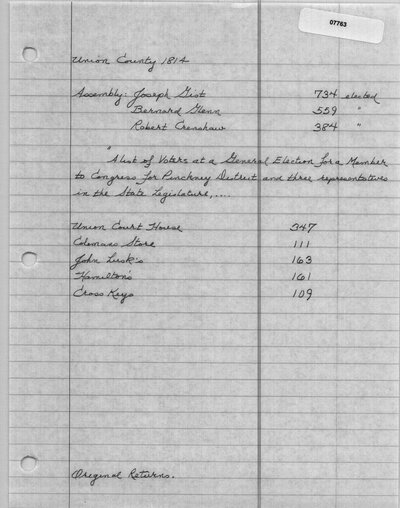 07763
Union County 1814
Assembly: Joseph Gist 734 elected
Bernard Glenn 559 "
Robert Crenshaw 384 "
"A list of Voters at a General Election for a Member
to Congress for Pinckney District and three representatives
in the State Legislature,....
Union Court House 347
Colemans Store 111
John Lusk's 163
Hamilton's 161
Cross Keys 109
Original Returns.